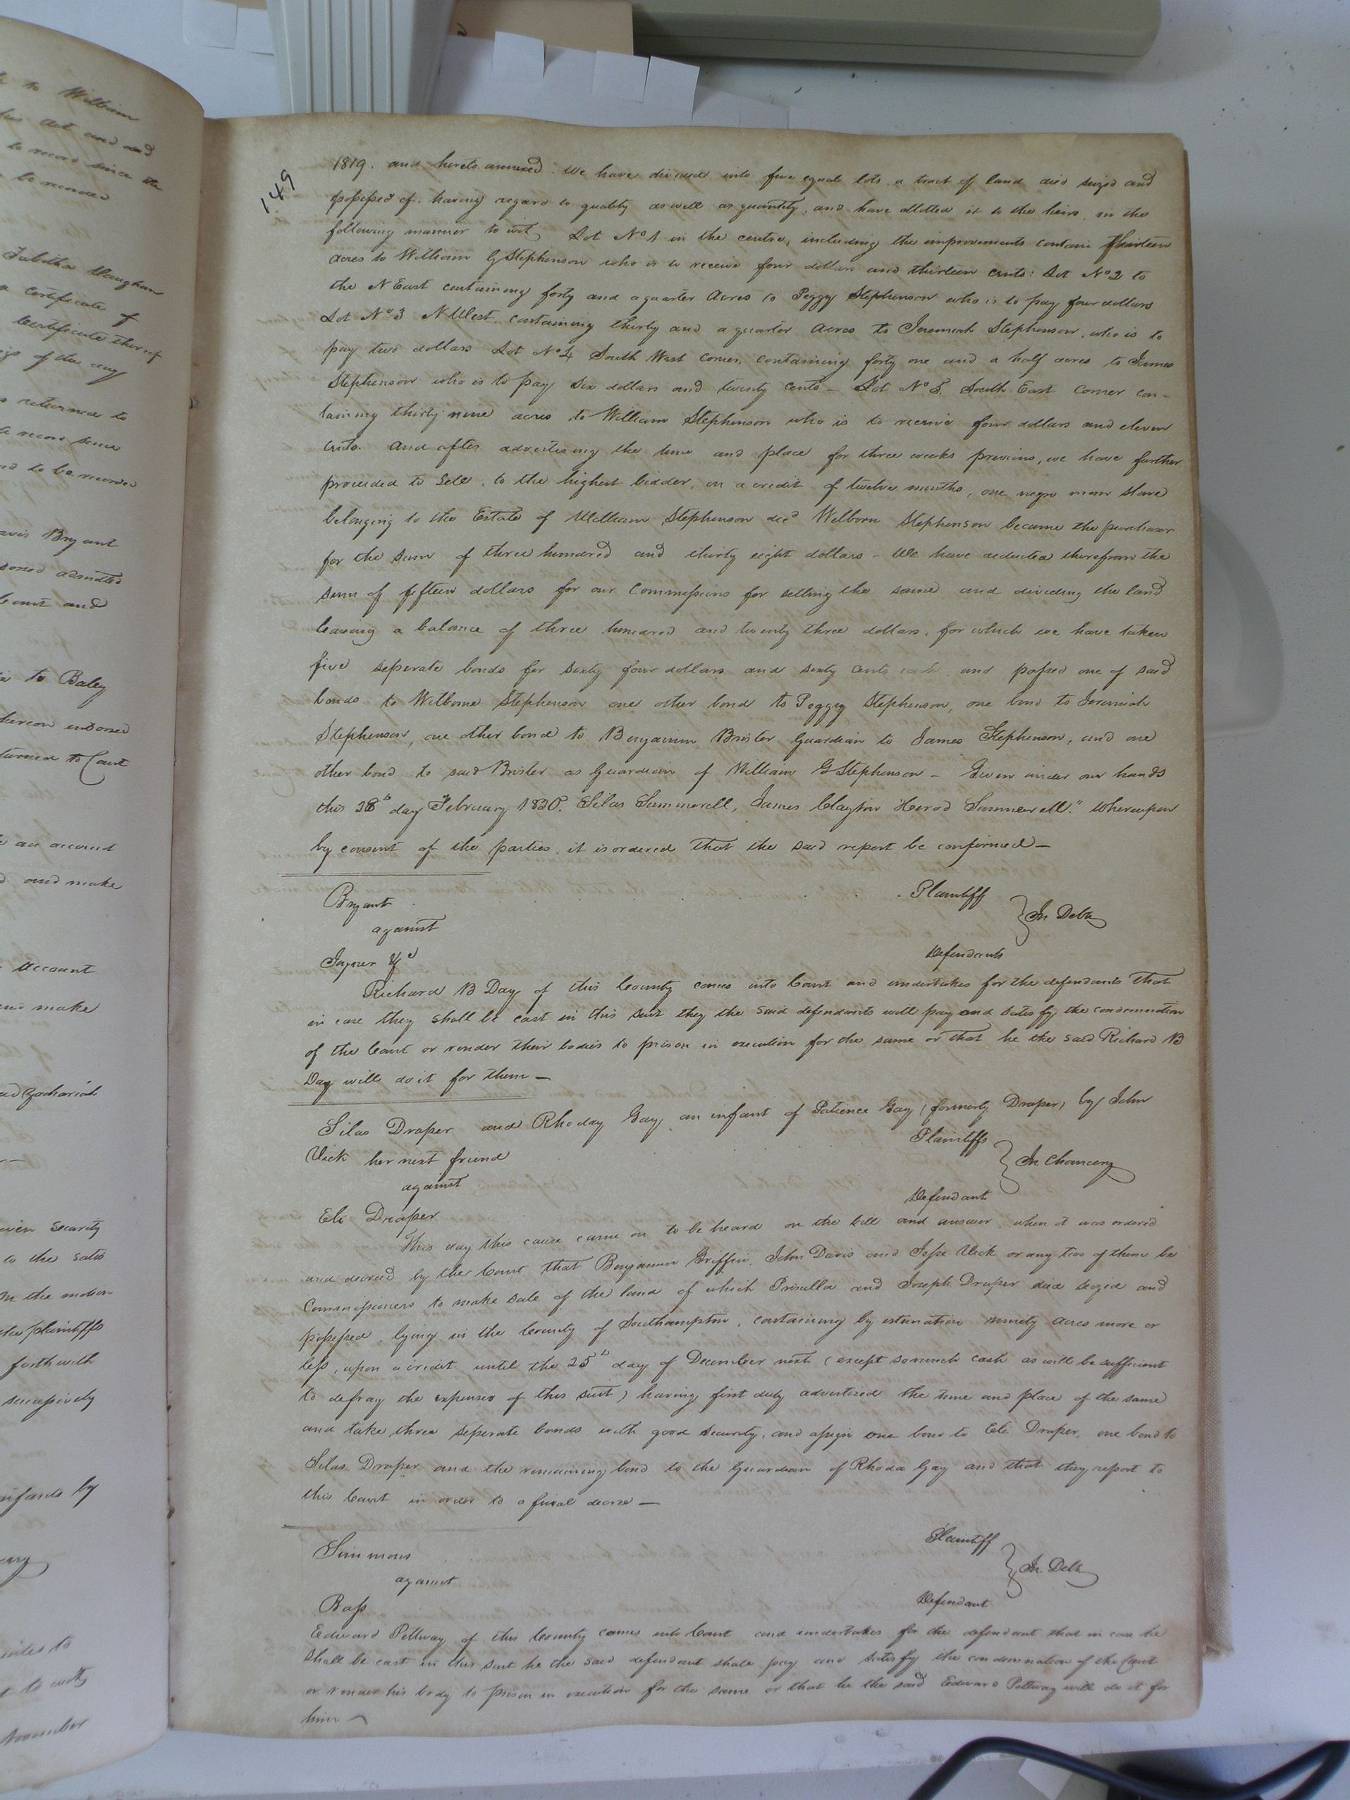 149
1819. and hereto annexed. We have divided into five equal lots a tract of land died seized and
possessed of. having regard to quality as well as quantity, and have allotted it to the heirs in the
following manner to wit Lot No 1 in the centre, including the improvements contain thirteen
acres to William G Stephenson who is to receive four dollars and thirteen cents: Lot No 2 to
the N East containing forty and a quarter Acres to Peggy Stephenson who is to pay four dollars
Lot No 3 N West, containing thirty and a quarter Acres to Jeremiah Stephenson, who is to
pay two dollars Lot No 4 South West corner, containing forty one and a half acres to James
Stephenson who is to pay six dollars and twenty cents — Lot No 5. South East corner con-
taining thirty nine acres to William Stephenson who is to receive four dollars and eleven
cents. And after advertising the time and place for three weeks previous, we have further
proceeded to sell, to the highest bidder, on a credit of twelve months, one negro man slave
belonging to the Estate of William Stephenson decd Welborn Stephenson became the purchaser
for the sum of three hundred and thirty eight dollars — We have deducted therefrom the
sum of fifteen dollars for our Commissions for selling the same and dividing the land
leaving a balance of three hundred and twenty three dollars, for which we have taken
five seperate bonds for sixty four dollars and sixty cents each and passed one of said
bonds to Welborne Stephenson one other bond to Peggy Stephenson, one bond to Jeremiah
Stephenson, one other bond to Benjamin Brister Guardian to James Stephenson, and one
other bond to said Brister as Guardian of William G Stephenson — Given under our hands
this 28th day February 1820. Silas Summerell, James Clayton Herod Summerell." Whereupon
by consent of the parties, it is ordered that the said report be confirmed —
Bryant Plaintiff
against } In Debt
Joyner &c Defendants
Richard B Day of this County comes into Court and undertakes for the defendants that
in case they shall be cast in this suit they the said defendants will pay and satisfy the condemnation
of the Court or render their bodies to prison in execution for the same or that he the said Richard B
Day will do it for them —
Silas Draper and Rhoday Gay an infant of Patience Gay (formerly Draper) by John
Vick her next friend Plaintiffs
against } In Chancery
Eli Draper Defendant
This day this cause came on to be heard on the bill and answer, when it was ordered
and decreed by the Court that Benjamin Griffin, John Davis and Jesse Vick or any two of them be
Commissioners to make sale of the land of which Prisulla and Joseph Draper died seized and
possessed, lying in the County of Southampton, containing by estimation ninety acres more or
less, upon a credit until the 25th day of December next (except so much cash as will be sufficient
to defray the expenses of this suit) having first duly advertized the time and place of the same
and take three seperate bonds with good security, and assign one bond to Eli Draper, one bond to
Silas Draper and the remaining bond to the Guardian of Rhoda Gay and that they report to
this Court in order to a final decree —
Simmons Plaintiff
against } In Debt
Bass Defendant
Edward Pettway of this County comes into Court and undertakes for the defendant that in case he
shall be cast in this suit he the said defendant shall pay and satisfy the condemnation of the Court
or render his body to prison in execution for the same or that he the said Edward Pettway will do it for
him —